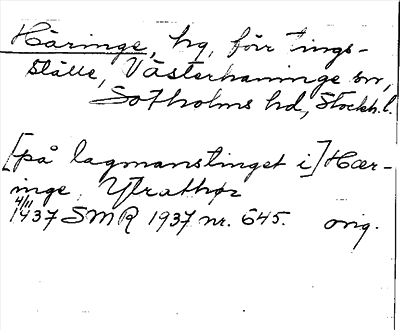 Häringe, hg, förr tings-
ställe, Västerhaninge sn,
Sotholms hd, Stockh. l.
[på lagmanstinget i] Hær-
inge, Ytrathør
4/11 1437 SMR 1937 nr. 645. orig.